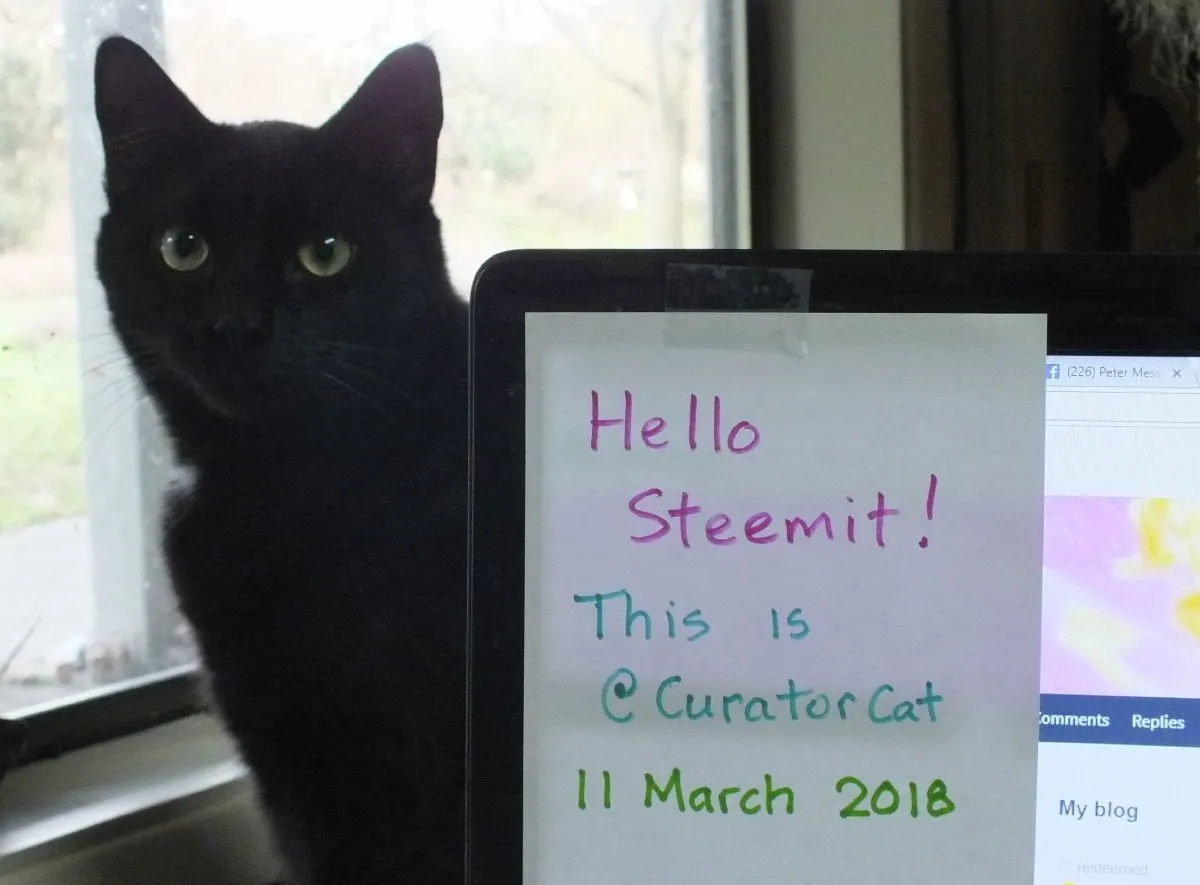 Hello
Steemit!
This is
@CuratorCat
11 March 2018
(226) Peter Mes
Comments Replies
My blog
resteemed